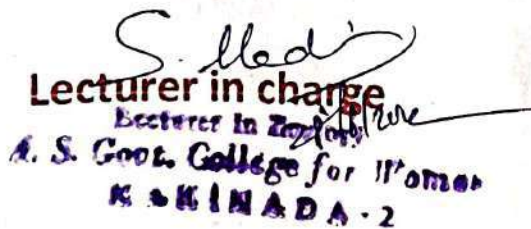 Lecturer in charge
Lecturer in Zoology
A. S. Govt. College for Women
KAKINADA - 2